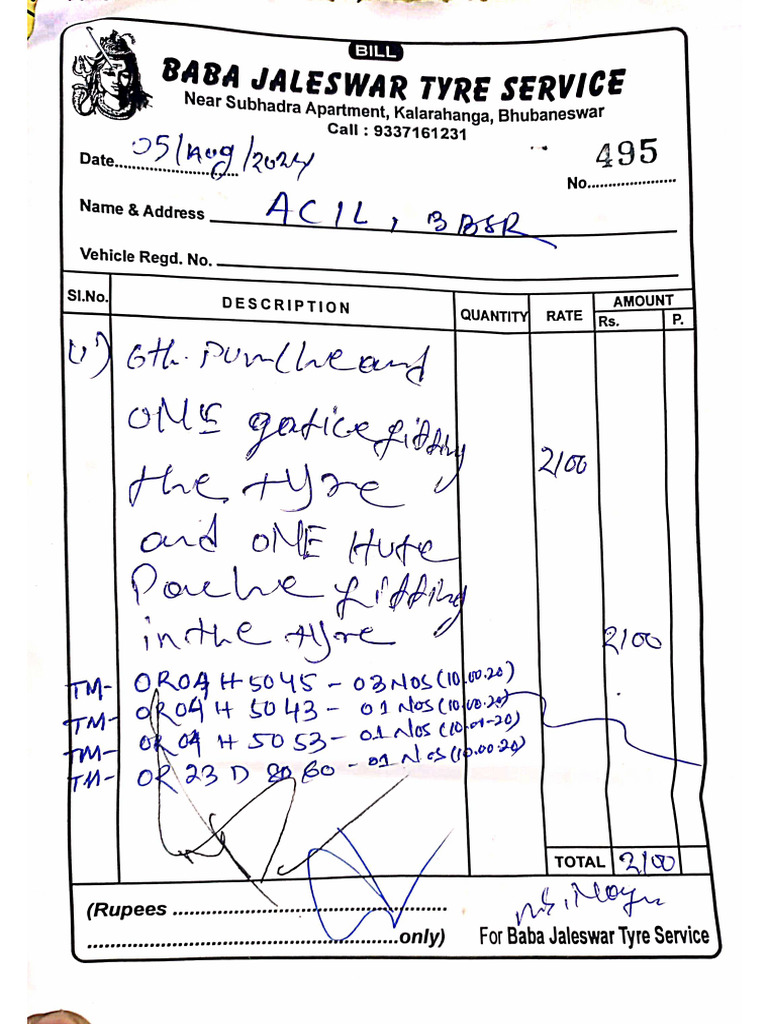 BILL
BABA JALESWAR TYRE SERVICE
Near Subhadra Apartment, Kalarahanga, Bhubaneswar
Call : 9337161231
Date 05/Aug/2024
No. 495
Name & Address ACIL, BBSR
Vehicle Regd. No.
Sl.No. DESCRIPTION QUANTITY RATE AMOUNT
Rs. P.
(1) 6th. and
ONE fitting 2100
the tyre
and ONE
fitting
in the tyre 2100
TM- OR04 H 5045 - 03 Nos (10.00.20)
TM- OR04 H 5043 - 01 Nos (10.00.20)
TM- OR04 H 5053 - 01 Nos (10.00-20)
TM- OR 23 D 8060 - 01 Nos (10.00.20)
TOTAL 2100
(Rupees
only)
For Baba Jaleswar Tyre Service